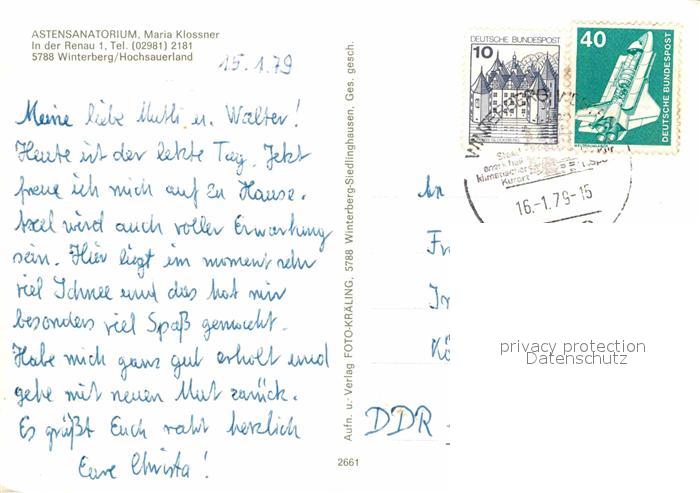 ASTENSANATORIUM, Maria Klossner
In der Renau 1, Tel. (02981) 2181
5788 Winterberg/Hochsauerland
15.1.79
Meine liebe Mutti u. Walter!
Heute ist der letzte Tag. Jetzt
freue ich mich auf zu Hause.
Axel wird auch voller Erwartung
sein. Hier liegt im moment sehr
viel Schnee und das hat mir
besonders viel Spaß gemacht.
Habe mich ganz gut erholt und
gehe mit neuen Mut zurück.
Es grüßt Euch recht herzlich
Eure Christa!
2661
Aufn. u. Verlag FOTO-KRÄLING, 5788 Winterberg-Siedlinghausen, Ges. gesch.
DEUTSCHE BUNDESPOST
10
40
DEUTSCHE BUNDESPOST
klimatischer
Kurort
16.-1.79-15
An
Fr
In
Kö
DDR
privacy protection
Datenschutz